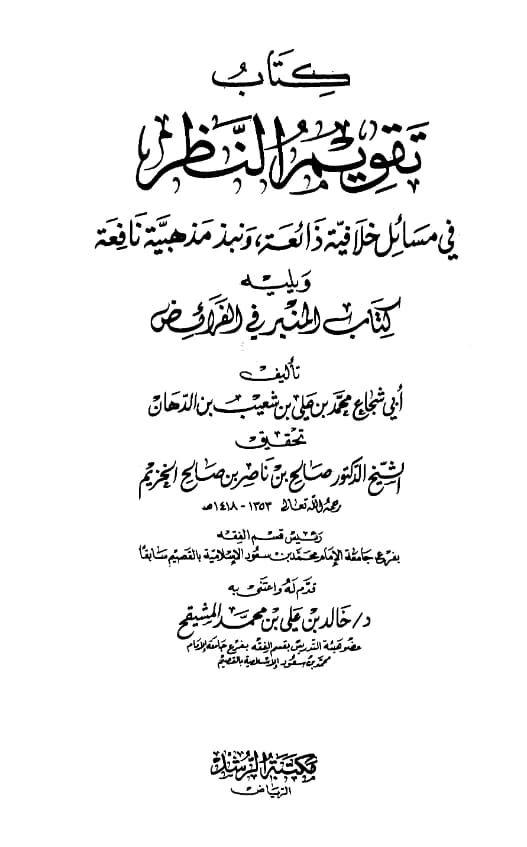 كِتَابُ
تَقْوِيمُ النَّظَر
في مَسَائِل خلافِيَّة ذَائعَة، ونبذ مَذهَبيَّة نَافِعَة
وَيليه
كِتَابُ المنبر في الفَرائض
تأليف
أبي شجاع محمَّد بن علي بن شعيب بن الدّهان
تحقيق
الشيخ الدكتور صالح بن ناصر بن صالح الخزيم
رحمه الله تعالى ١٣٥٣ - ١٤١٨هـ
رئيس قسم الفقه
بفرع جامعة الإمام محمد بن سعود الإسلامية بالقصيم سابقًا
قدّم له واعتنى به
د/ خالد بن علي بن محمد المشيقح
عضو هيئة التدريس بقسم الفقه بفرع جامعة الإمام
محمد بن سعود الإسلامية بالقصيم
مكتبة الرشد
الرياض